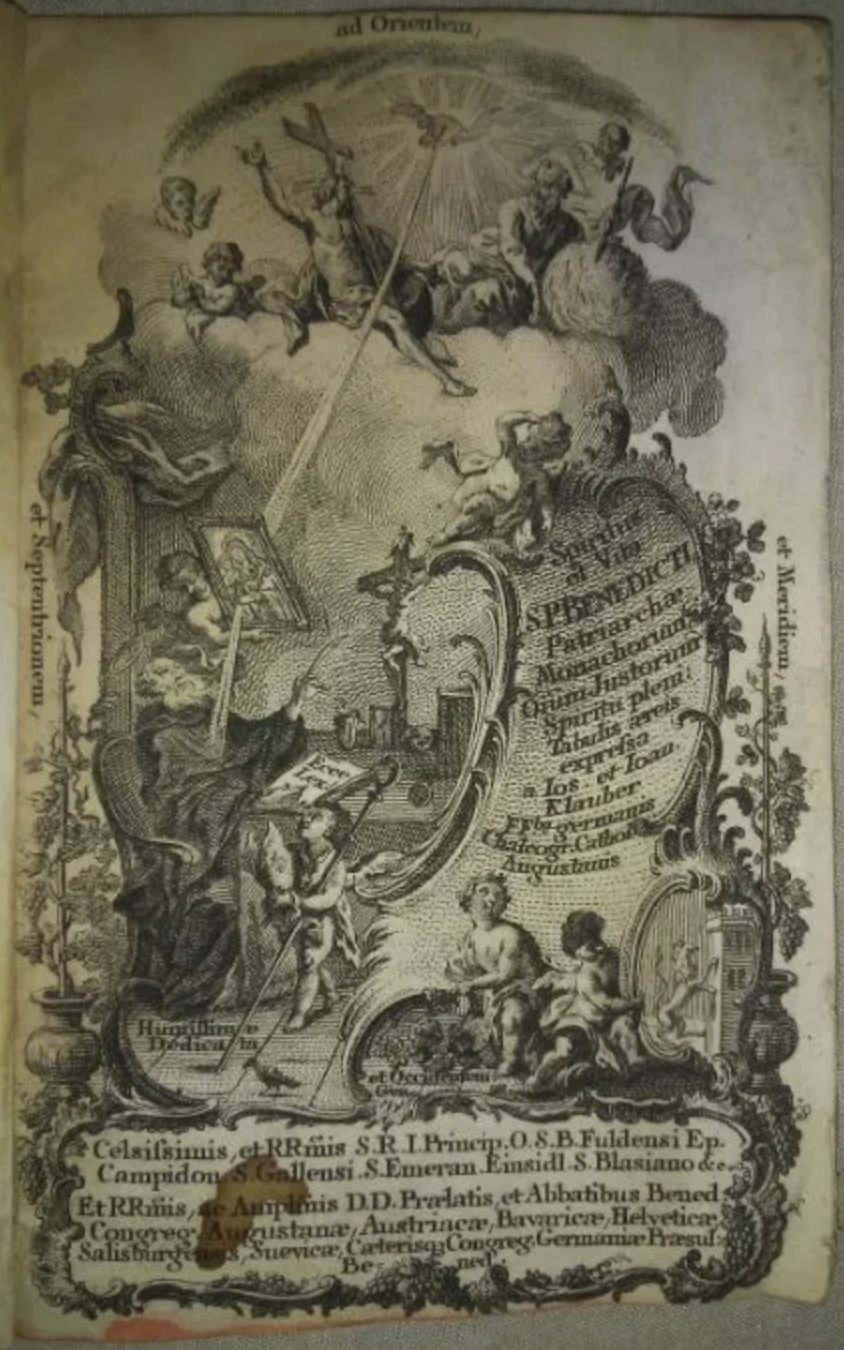 ad Orientem,
et Septentrionem,
et Meridiem,
Spiritus
et Vita
S.P.BENEDICTI
Patriarchæ
Monachorum
Oniūm Justorum
Spiritu pleni
Tabulis æreis
expressa
a Ios. et Ioan.
Klauber
germanis
Chalcogr. Cathol.
Augustanis
Ecce
Lex
Humillime
Dedicata
et Occidentem
Celsissimis, et RRm̄is S.R.I. Princip. O.S.B. Fuldensi Ep.
Campidon. S. Gallensi. S. Emeran. Einsidl. S. Blasiano &c.
Et RRm̄is, ac Amplm̄is D.D. Prælatis, et Abbatibus Bened
Congreg. Augustanæ, Austriacæ, Bavaricæ, Helveticæ
Salisburgensis, Suevicæ, Cæterisq3 Congreg. Germaniæ Præsul:
Be- ned.